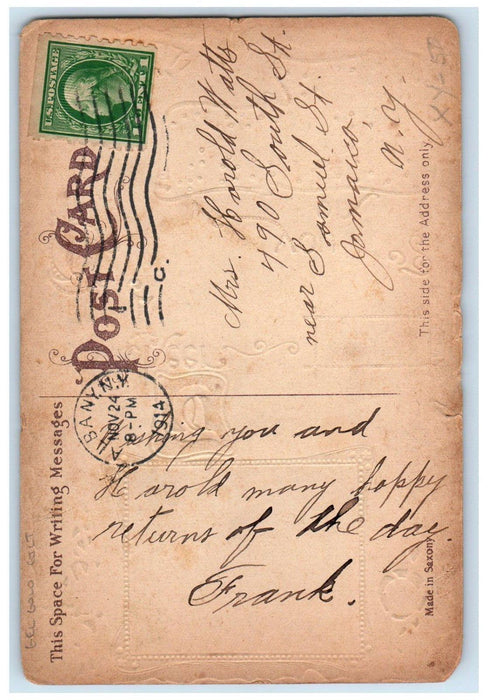 U.S. POSTAGE
1 CENT 1
POST CARD
ALBANY, N.Y.
NOV 24
8-PM
1914
C.
This Space For Writing Messages
This side for the Address only
Wishing you and
Harold many happy
returns of the day.
Frank.
Mrs. Harold Watts
490 South St.
near Samuel St.
Jamaica,
N.Y.
Made in Saxony